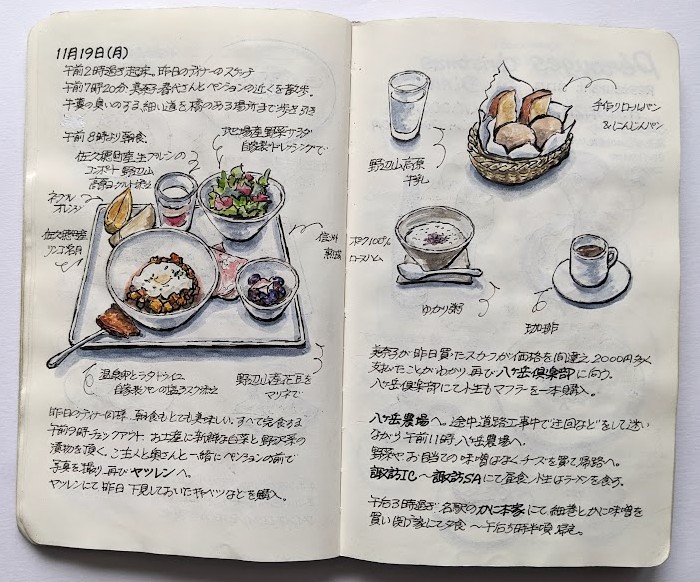 11月19日(月)
午前2時過ぎ起床。昨日のディナーのスケッチ
午前7時20分 美奈子 喜代さんとペンションの近くを散歩。
干藁の臭いのする、細い道を橋のある場所まで歩き引き
午前8時より朝食。
地場産野菜サラダ
自家製ドレッシングで
佐久穂町産生プルーンの
コンポート 野辺山
高原ヨーグルト添え
ネーブル
オレンジ
佐久穂町産
リンゴ
信州
熟成
温泉卵とラタトゥイユ
自家製パンの塩ラスク添え
野辺山産花豆を
マリネで
昨日のディナー同様、朝食もとても美味しい。すべて完食する
午前9時チェックアウト お土産に新鮮な白菜と野沢菜の
漬物を頂く。ご主人と奥さんと一緒にペンションの前で
写真を撮り、再びヤツレンへ。
ヤツレンにて昨日下見しておいたキャベツなどを購入。
手作りロールパン
&にんじんパン
野辺山高原
牛乳
ポーク100%
ロースハム
ゆかり粥
珈琲
美奈子が昨日買ったスカーフが価格を間違え2000円多く
支払たことがわかり、再び八ヶ岳倶楽部に向う。
八ヶ岳倶楽部にて小生もマフラーを一本購入。
八ヶ岳農場へ。途中道路工事中で迂回などをして迷い
ながら午前11時、八ヶ岳農場へ。
野菜やお目当ての味噌はなくチーズを買て帰路へ。
諏訪IC〜諏訪SAにて昼食 小生はラーメンを食す。
午后3時過ぎ、名駅のかに本家にて細巻とかに味噌を
買い 家にて夕食 〜午后5時半頃